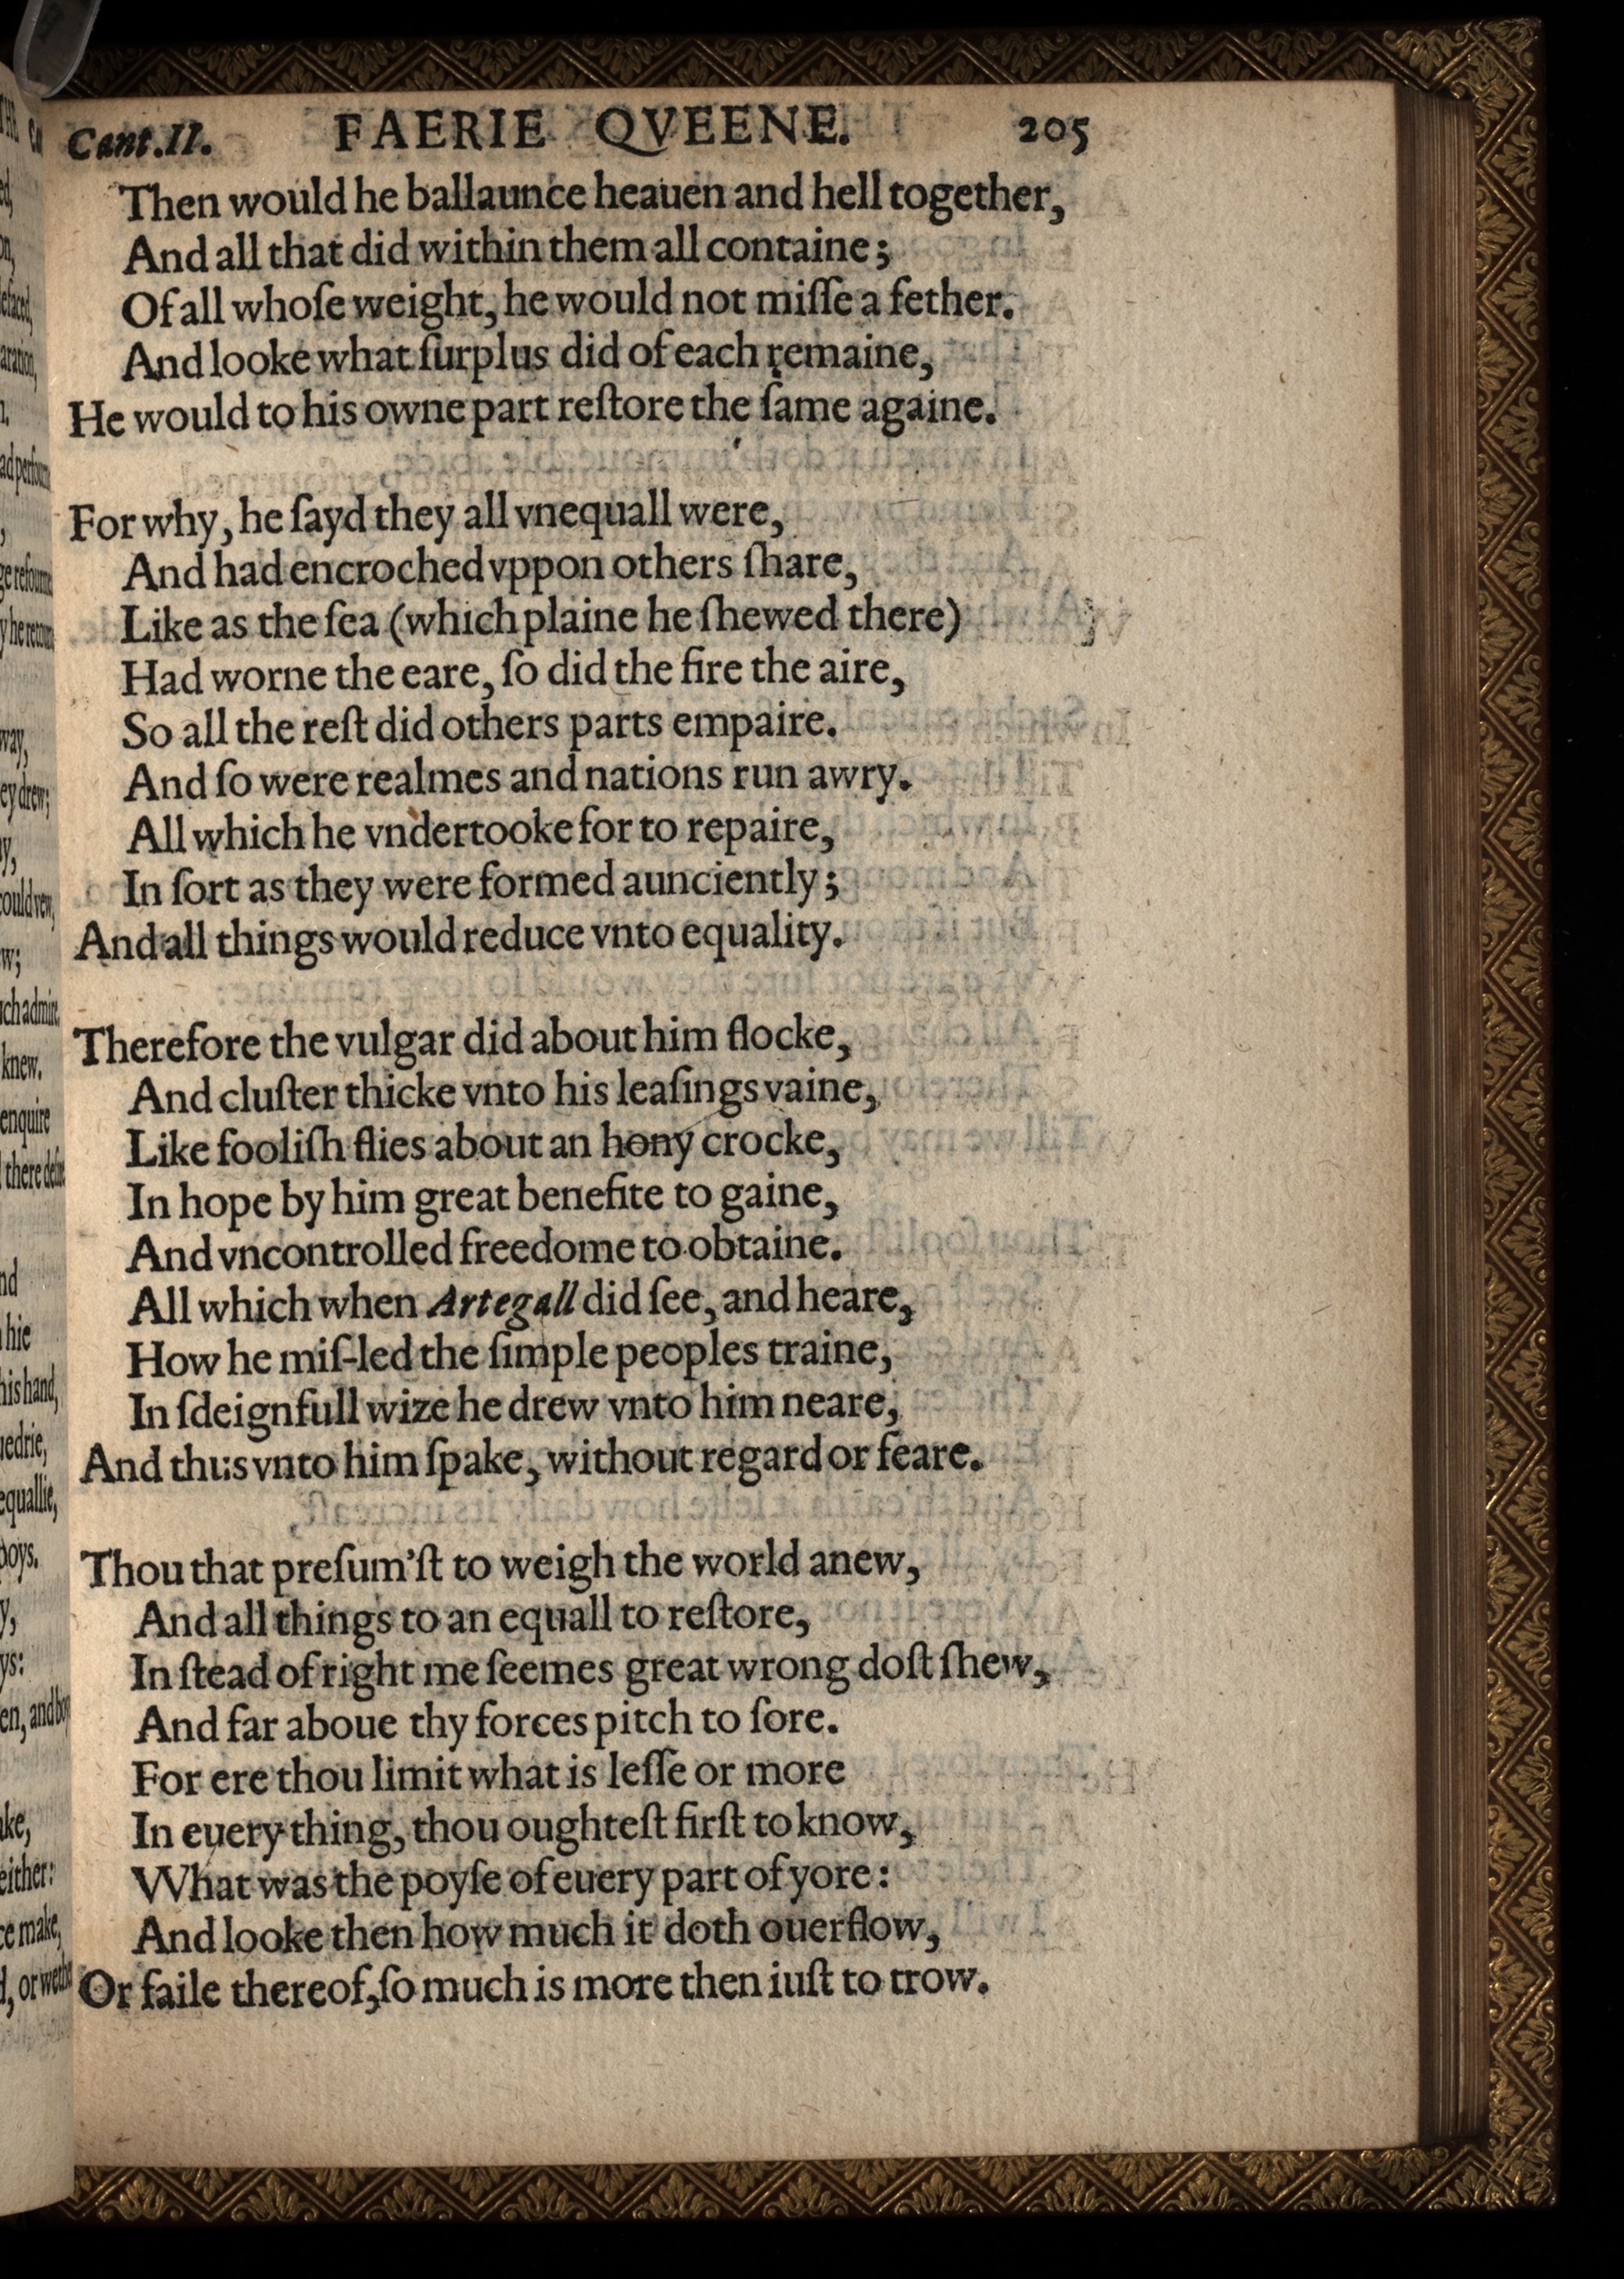 Cant.II. FAERIE QVEENE. 205
Then would he ballaunce heauen and hell together,
And all that did within them all containe;
Of all whoſe weight, he would not miſſe a fether.
And looke what ſurplus did of each remaine,
He would to his owne part reſtore the ſame againe.
For why, he ſayd they all vnequall were,
And had encroched vppon others ſhare,
Like as the ſea (which plaine he ſhewed there)
Had worne the eare, ſo did the fire the aire,
So all the reſt did others parts empaire.
And ſo were realmes and nations run awry.
All which he vndertooke for to repaire,
In ſort as they were formed aunciently;
And all things would reduce vnto equality.
Therefore the vulgar did about him flocke,
And cluſter thicke vnto his leaſings vaine,
Like fooliſh flies about an hony crocke,
In hope by him great benefite to gaine,
And vncontrolled freedome to obtaine.
All which when Artegall did ſee, and heare,
How he miſ-led the ſimple peoples traine,
In ſdeignfull wize he drew vnto him neare,
And thus vnto him ſpake, without regard or feare.
Thou that preſum'ſt to weigh the world anew,
And all things to an equall to reſtore,
In ſtead of right me ſeemes great wrong doſt ſhew,
And far aboue thy forces pitch to ſore.
For ere thou limit what is leſſe or more
In euery thing, thou oughteſt firſt to know,
What was the poyſe of euery part of yore:
And looke then how much it doth ouerflow,
Or faile thereof, ſo much is more then iuſt to trow.